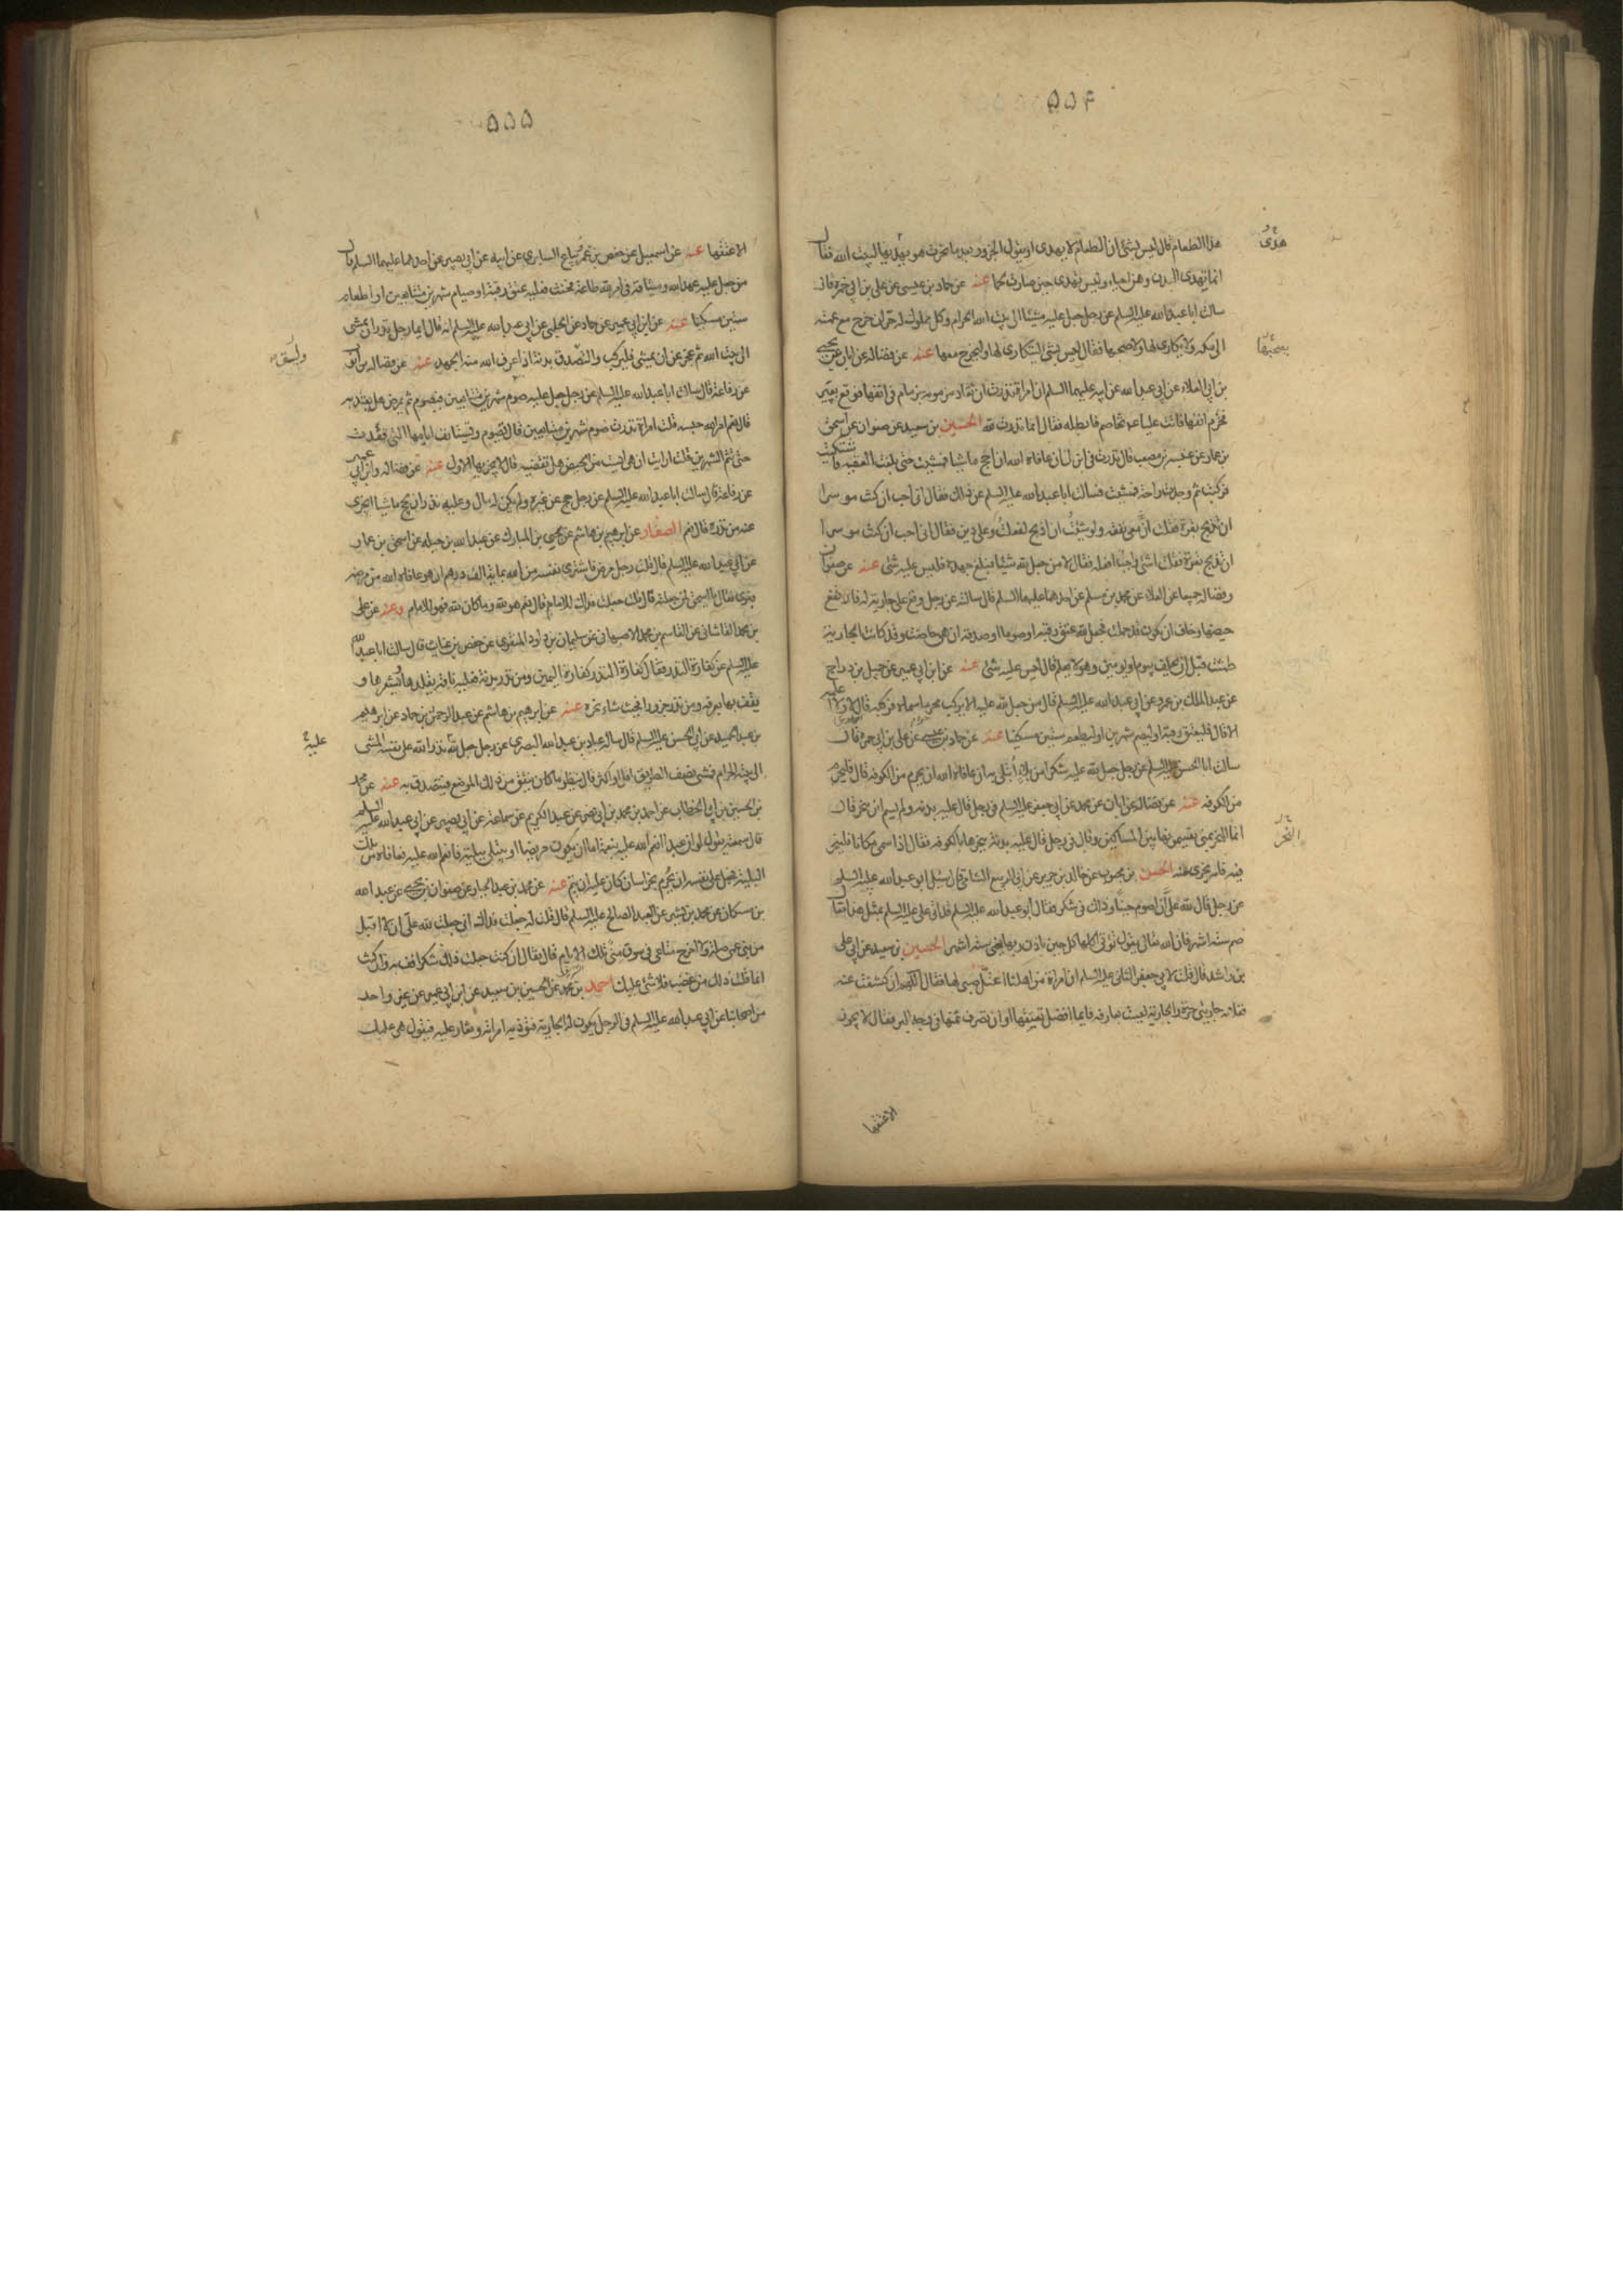 ۵۵۴
هذا الطعام قال ليس بشئ ان الطعام لا يهدى او يقول الجزور بعد ما نحرت هو يهديها لبيت الله فقال
انما تهدى البدن وهن احياء وليس تهدى حين صارت لحما عنه عن حماد بن عيسى عن على بن ابى حمزة قال
سالت ابا عبد الله عليه السلم عن رجل جعل عليه مشيا الى بيت الله الحرام وكل مملوك له حر ان خرج مع عمته
الى مكه ولا يكارى لها ولا صحبها فقال ليس بشئ ليتكارى لها وليخرج معها عنه عن فضاله عن ابان عن يحيى
بن ابى العلاء عن ابى عبد الله عن ابيه عليهما السلم ان امراة نذرت ان تقاد مزمومة بزمام فى انفها فوقع بعير
فخرم انفها فاتت عليا عم تخاصم فابطله فقال انما نذرت لله الحسين بن سعيد عن صفوان عن اسحق
بن عمار عن عنبسه بن مصعب قال نذرت فى ابن لى ان عافاه الله ان احج ماشيا فمشيت حتى بلغت العقبه فاشتكيت
فركبت ثم وجدت راحة فمشيت فسالت ابا عبد الله عليه السلم عن ذلك فقال انى احب ان كنت موسرا
ان تذبح بقرة فقلت ان معى نفقه ولو شئت ان اذبح لفعلت وعلى دين فقال انى احب ان كنت موسرا
ان تذبح بقرة فقلت اشئ واجب افعله فقال لا من جعل لله شيئا فبلغ جهده فليس عليه شئ عنه عن صفوان
وفضاله جميعا عن العلاء عن محمد بن مسلم عن احدهما عليهما السلم قال سالته عن رجل وقع على جارية له فارتفع
حيضها وخاف ان تكون قد حملت فجعل لله عتق رقبة او صوما او صدقه ان هى حاضت وقد كانت الجارية
طمثت قبل ان يحلف بيوم او يومين وهو لا يعلم قال ليس عليه شئ عنه عن ابن ابى عمير عن جميل بن دراج
عن عبد الملك بن عمرو عن ابى عبد الله عليه السلم قال من جعل لله عليه الا يركب محرما سماه فركبه قال ولا اعلمه
الا قال فليعتق رقبة او ليصم شهرين او ليطعم ستين مسكينا عنه عن حماد بن عيسى عن على بن ابى حمزه قال
سالت ابا الحسن عليه السلم عن رجل جعل لله عليه شكرا من بلاء ابتلى به ان عافاه الله ان يحرم من الكوفه قال فليحرم
من الكوفه عنه عن فضاله عن ابان عن محمد عن ابى جعفر عليه السلم فى رجل قال عليه بدنه ولم يسم اين ينحر قال
انما النحر بمنى يقسمونها بين المساكين وقال فى رجل قال عليه بدنة ينحرها بالكوفه فقال اذا سمى مكانا فلينحر
فيه فانه يجزى عنه الحسن بن محبوب عن خالد بن جرير عن ابى الربيع الشامى قال سئل ابو عبد الله عليه السلم
عن رجل قال لله على ان اصوم حينا وذلك فى شكر فقال ابو عبد الله عليه السلم قد اتى على عليه السلم بمثل هذا فقال
صم ستة اشهر فان الله تعالى يقول تؤتى اكلها كل حين باذن ربها يعنى ستة اشهر الحسين بن سعيد عن ابى على
بن راشد قال قلت لابى جعفر الثانى عليه السلم ان امراة من اهلنا اعتل صبى لها فقالت اللهم ان كشفت عنه
ففلانه جاريتى حرة والجارية ليست بعارفه فايما افضل تعتقها او ان تصرف ثمنها فى وجه البر فقال لا يجوز
الا عتقها
هدى
بصحبها
النحر
۵۵۵
الا عتقها عنه عن اسمعيل عن حفص بن عمر بياع السابرى عن ابيه عن ابى بصير عن احدهما عليهما السلم قال
من جعل عليه عهد الله وميثاقه فى امر لله طاعة فحنث فعليه عتق رقبة او صيام شهرين متتابعين او اطعام
ستين مسكينا عنه عن ابن ابى عمير عن حماد عن الحلبى عن ابى عبد الله عليه السلم انه قال ايما رجل نذر ان يمشى
الى بيت الله ثم عجز عن ان يمشى فليركب والتصدق بدنة اذا عرف الله منه الجهد عنه عن فضاله بن ايوب
عن رفاعة قال سالت ابا عبد الله عليه السلم عن رجل جعل عليه صوم شهرين متتابعين فيصوم ثم يمرض هل يعتد به
قال نعم امر الله حبسه قلت امراة نذرت صوم شهرين متتابعين قال تصوم وتستانف ايامها التى قعدت
حتى تتم الشهرين قلت ارايت ان هى ايست من الحيض هل تقضيه قال لا يجزيها الاول عنه عن فضاله وابن ابى عمير
عن رفاعة قال سالت ابا عبد الله عليه السلم عن رجل حج عن غيره ولم يكن له مال وعليه نذر ان يحج ماشيا ايجزى
عنه من نذره قال نعم الصفار عن ابرهيم بن هاشم عن يحيى بن المبارك عن عبد الله بن جبله عن اسحق بن عمار
عن ابى عبد الله عليه السلم قال قلت رجل مرض فاشترى نفسه من الله بماية الف درهم ان هو عافاه الله من مرضه
فبرى فقال يا اسحق لمن جعلته قال قلت جعلت فداك للامام قال نعم هو لله وما كان لله فهو للامام وعنه عن على
بن محمد القاشانى عن القاسم بن محمد الاصبهانى عن سليمان بن داود المنقرى عن حفص بن غياث قال سالت ابا عبد الله
عليه السلم عن كفارة النذر فقال كفارة النذر كفارة اليمين ومن نذر بدنة فعليه ناقة يقلدها ويشعرها و
يقف بها بعرفه ومن نذر جزورا فحيث شاء نحره عنه عن ابرهيم بن هاشم عن عبد الرحمن بن حماد عن ابرهيم
بن عبد الحميد عن ابى الحسن عليه السلم قال ساله عباد بن عبد الله البصرى عن رجل جعل لله نذرا لله على نفسه المشى
الى بيته الحرام فمشى نصف الطريق اقل او اكثر قال ينظر ما كان ينفق من ذلك الموضع فيتصدق به عنه عن محمد
بن الحسين بن ابى الخطاب عن احمد بن محمد بن ابى نصر عن عبد الكريم عن سماعة عن ابى بصير عن ابى عبد الله عليه السلم
قال سمعته يقول لو ان عبدا انعم الله عليه نعمة اما ان يكون مريضا او يبتلى ببلية فانعم الله عليه فعافاه من تلك
البلية فجعل على نفسه ان يحرم بخراسان كان عليه ان يتم عنه عن محمد بن عبد الجبار عن صفوان بن يحيى عن عبد الله
بن مسكان عن محمد بن بشير عن العبد الصالح عليه السلم قال قلت له جعلت فداك انى جعلت لله على ان لا اقبل
من بنى عمى صلة ولا اخرج متاعى فى سوق منى تلك الايام قال فقال ان كنت جعلت ذلك شكرا فف به وان كنت
انما قلت ذلك من غضب فلا شئ عليك احمد بن محمد عن الحسين بن سعيد عن ابن ابى عمير عن غير واحد
من اصحابنا عن ابى عبد الله عليه السلم فى الرجل يكون له الجارية فتؤذيه امراته وتغار عليه فيقول هى عليك
عليه